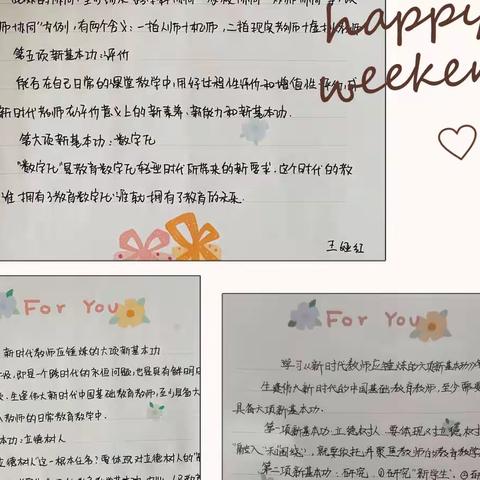 师协同"为例,有两个含义:一指人师+机师,二指现实教师+虚拟教师
第五项新基本功:评价
能否在自己日常的课堂教学中,用好过程性评价和增值性评价,成
新时代教师在评价意义上的新素养、新能力和新基本功.
第六项新基本功:数字化
"数字化"是教育数字化转型时代所带来的新要求.这个时代的教
谁拥有了教育数字化,谁就拥有了教育的未来.
王娅红
happy
weeken
For You
新时代教师应锤炼的六项新基本功
及,即是一个跨时代的永恒问题,也是具有鲜明
生逢伟大新时代中国基础教育教师,至少具备六
教师的日常教育教学中.
本功:立德树人
立德树人"这一根本任务?要体现对立德树人的"
For You
学习《新时代教师应锤炼的六项新基本功》
生逢伟大新时代的中国基础教育教师,至少需要
具备六项新基本功.
第一项新基本功:立德树人.要体现对立德树
"融入",就要依托、弄聚焦教师的教育教学
第二项新基本功:研究.①研究"新学生".②研